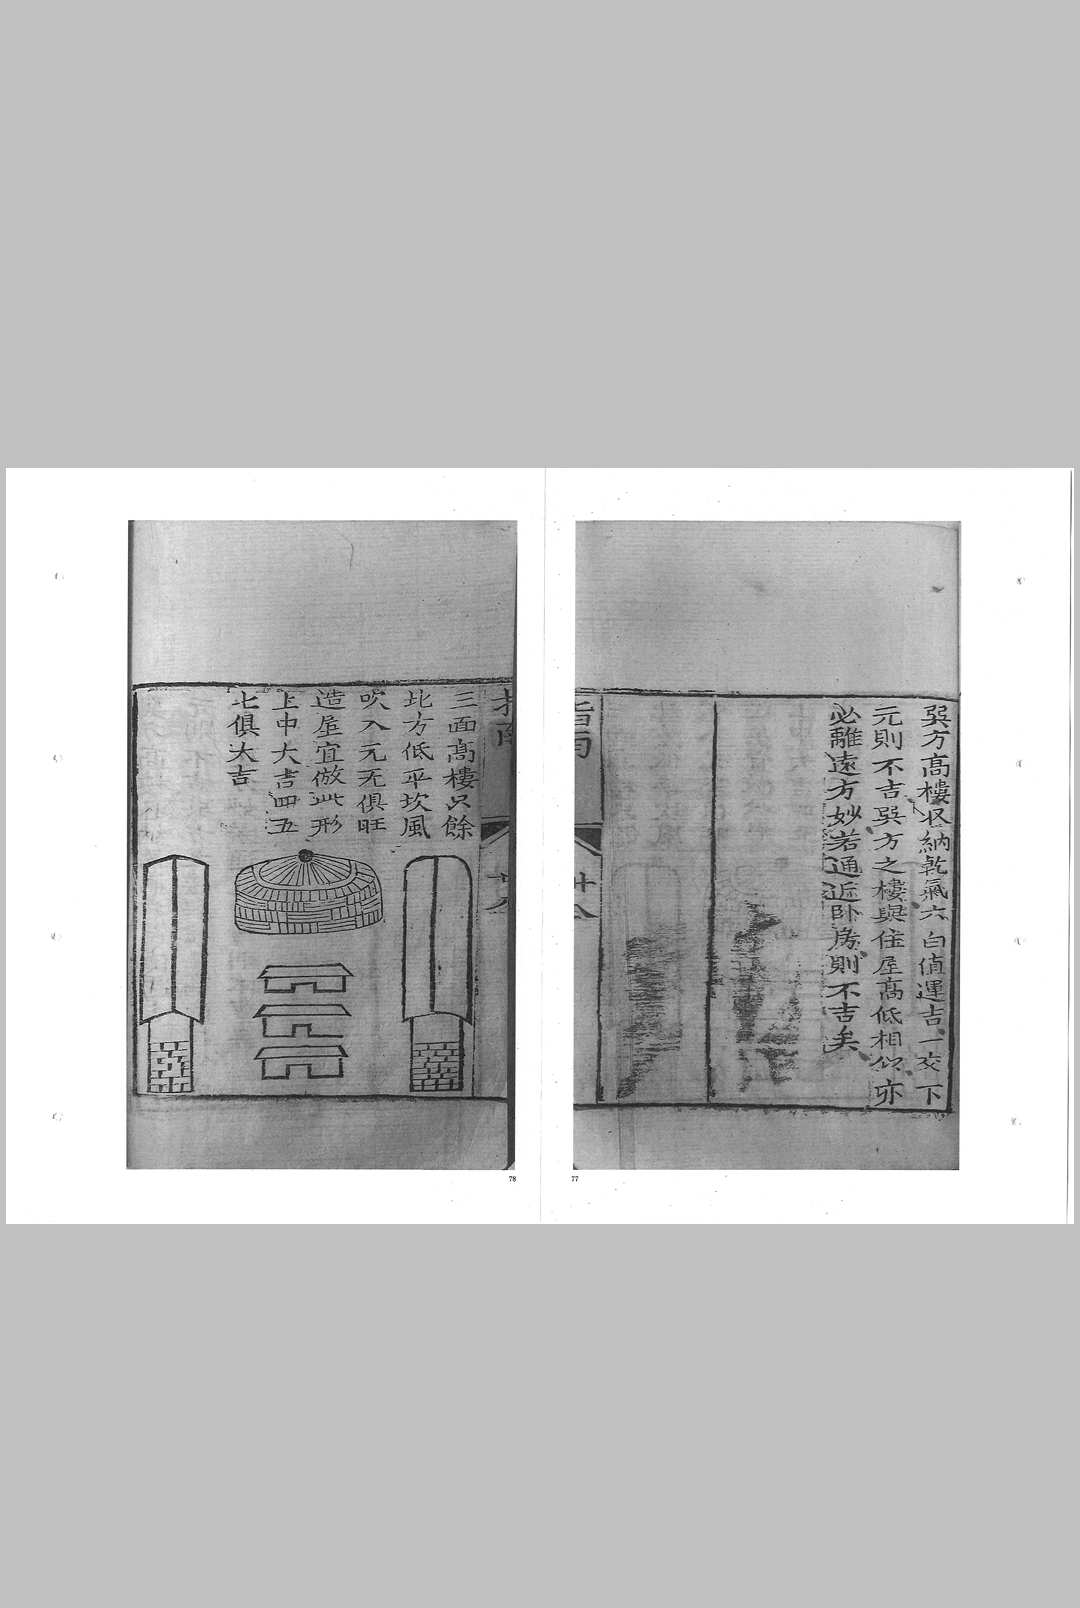 巽方高樓収納乾氣六白値運吉一交下
元則不吉巽方之樓與住屋高低相似亦
必離遠方妙若通近卧房則不吉矣
指南
77
三面高樓只餘
北方低平坎風
吹入元无俱旺
造屋宜倣此形
上中大吉四五
七俱大吉
78